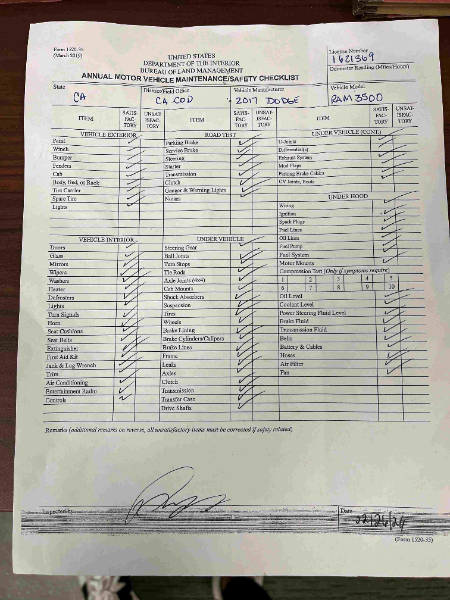 Form 1520-35
(March 2015)
UNITED STATES
DEPARTMENT OF THE INTERIOR
BUREAU OF LAND MANAGEMENT
ANNUAL MOTOR VEHICLE MAINTENANCE/SAFETY CHECKLIST
License Number
1621369
Odometer Reading (Miles/Hours)
State
CA
District/Field Office
CA COD
Vehicle Manufacturer
2017 DODGE
Vehicle Model
RAM 3500
ITEM SATIS-FAC-TORY UNSAT-ISFAC-TORY
VEHICLE EXTERIOR
Paint
Winch
Bumper
Fenders
Cab
Body, Bed, or Rack
Tire Carrier
Spare Tire
Lights
VEHICLE INTERIOR
Doors
Glass
Mirrors
Wipers
Washers
Heater
Defrosters
Lights
Turn Signals
Horn
Seat Cushions
Seat Belts
Extinguisher
First Aid Kit
Jack & Lug Wrench
Trim
Air Conditioning
Entertainment Radio
Controls
ITEM SATIS-FAC-TORY UNSAT-ISFAC-TORY
ROAD TEST
Parking Brake
Service Brake
Steering
Starter
Transmission
Clutch
Gauges & Warning Lights
Noises
UNDER VEHICLE
Steering Gear
Ball Joints
Turn Stops
Tie Rods
Axle Joints (4x4)
Cab Mounts
Shock Absorbers
Suspension
Tires
Wheels
Brake Lining
Brake Cylinders/Calipers
Brake Lines
Frame
Leaks
Axles
Clutch
Transmission
Transfer Case
Drive Shafts
ITEM SATIS-FAC-TORY UNSAT-ISFAC-TORY
UNDER VEHICLE (CONT.)
U-Joints
Differential(s)
Exhaust System
Mud Flaps
Parking Brake Cables
CV Joints, Boots
UNDER HOOD
Wiring
Ignition
Spark Plugs
Fuel Lines
Oil Lines
Fuel Pump
Fuel System
Motor Mounts
Compression Test (Only if symptoms require)
1 2 3 4 5
6 7 8 9 10
Oil Level
Coolant Level
Power Steering Fluid Level
Brake Fluid
Transmission Fluid
Belts
Battery & Cables
Hoses
Air Filter
Fan
Remarks (additional remarks on reverse, all unsatisfactory items must be corrected if safety related)
Inspected by
Date
(Form 1520-35)